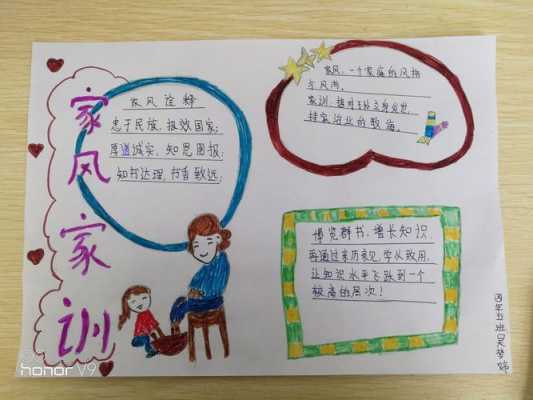 家风家训
家风诠释
忠于民族，报效国家；
厚道诚实，知恩图报；
知书达理，书香致远；
家风，一个家庭的风格
与风尚。
家训，指对子孙立身处世、
持家治业的教诲。
博览群书，增长知识
再通过亲历亲见，学以致用，
让知识水平飞跃到一个
极高的层次！
四年五班吴梦
honor V9